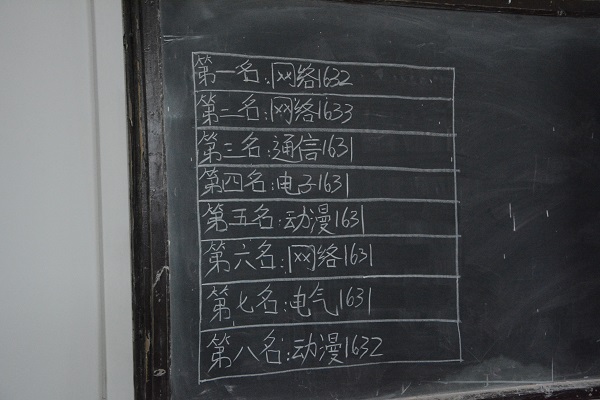 第一名:网络1632
第二名:网络1633
第三名:通信1631
第四名:电子1631
第五名:动漫1631
第六名:网络1631
第七名:电气1631
第八名:动漫1632